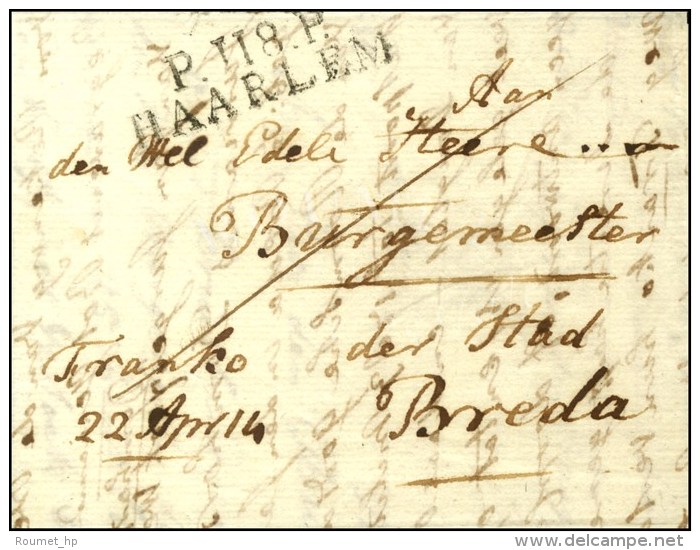 P.118.P.
HAARLEM
Aan
den Wel Edele Heere ...
Burgemeester
der Stad
Franko
Breda
22 Apr 14
Roumet_hp
www.delcampe.net